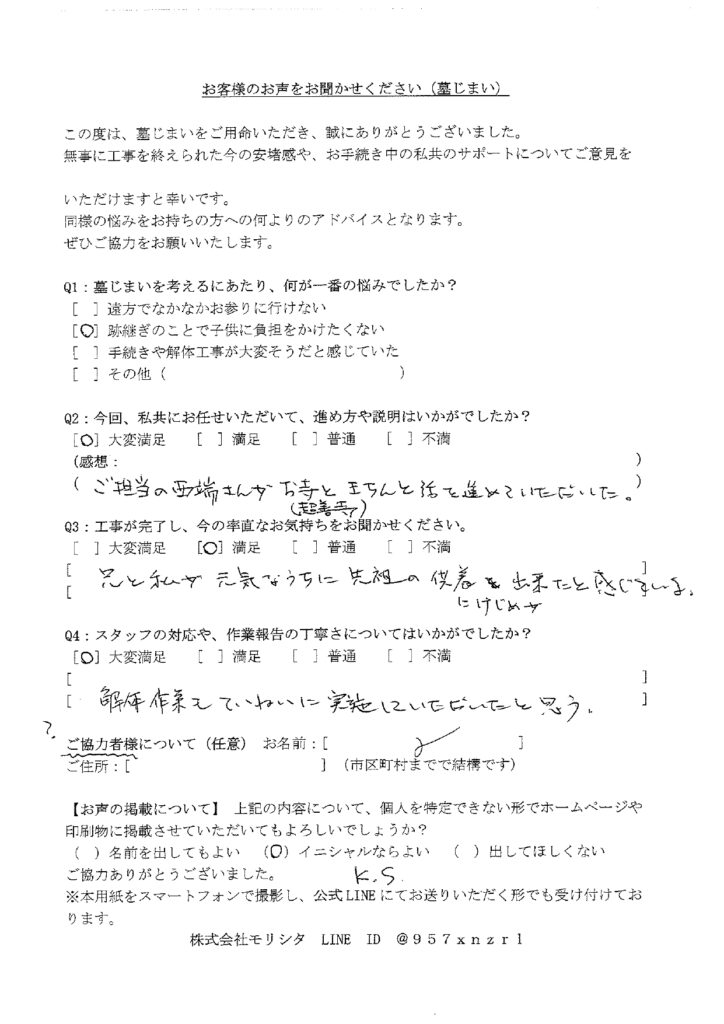 お客様のお声をお聞かせください（墓じまい）
この度は、墓じまいをご用命いただき、誠にありがとうございました。
無事に工事を終えられた今の安堵感や、お手続き中の私共のサポートについてご意見を
いただけますと幸いです。
同様の悩みをお持ちの方への何よりのアドバイスとなります。
ぜひご協力をお願いいたします。
Q1：墓じまいを考えるにあたり、何が一番の悩みでしたか？
[　] 遠方でなかなかお参りに行けない
[○] 跡継ぎのことで子供に負担をかけたくない
[　] 手続きや解体工事が大変そうだと感じていた
[　] その他（　　　　　　　　　　　　）
Q2：今回、私共にお任せいただいて、進め方や説明はいかがでしたか？
[○] 大変満足　[　] 満足　[　] 普通　[　] 不満
(感想：　　　　　　　　　　　　)
( ご担当の西端さんがお寺ときちんと話を進めていただいた。)
(超善寺)
Q3：工事が完了し、今の率直なお気持ちをお聞かせください。
[　] 大変満足　[○] 満足　[　] 普通　[　] 不満
[　　　　　　　　　　　　]
[ 兄と私が元気なうちに先祖の供養を出来たと感じている。
にけじめが
Q4：スタッフの対応や、作業報告の丁寧さについてはいかがでしたか？
[○] 大変満足　[　] 満足　[　] 普通　[　] 不満
[　　　　　　　　　　　　]
[ 解体作業もていねいに実施していただいたと思う。 ]
?
ご協力者様について（任意） お名前：[　　　　　　]
ご住所：[　　　　　　　　] （市区町村までで結構です）
【お声の掲載について】 上記の内容について、個人を特定できない形でホームページや
印刷物に掲載させていただいてもよろしいでしょうか？
(　) 名前を出してもよい　(○) イニシャルならよい　(　) 出してほしくない
ご協力ありがとうございました。　K.S.
※本用紙をスマートフォンで撮影し、公式LINEにてお送りいただく形でも受け付けてお
ります。
株式会社モリシタ　LINE　ID　＠９５７ｘｎｚｒｌ